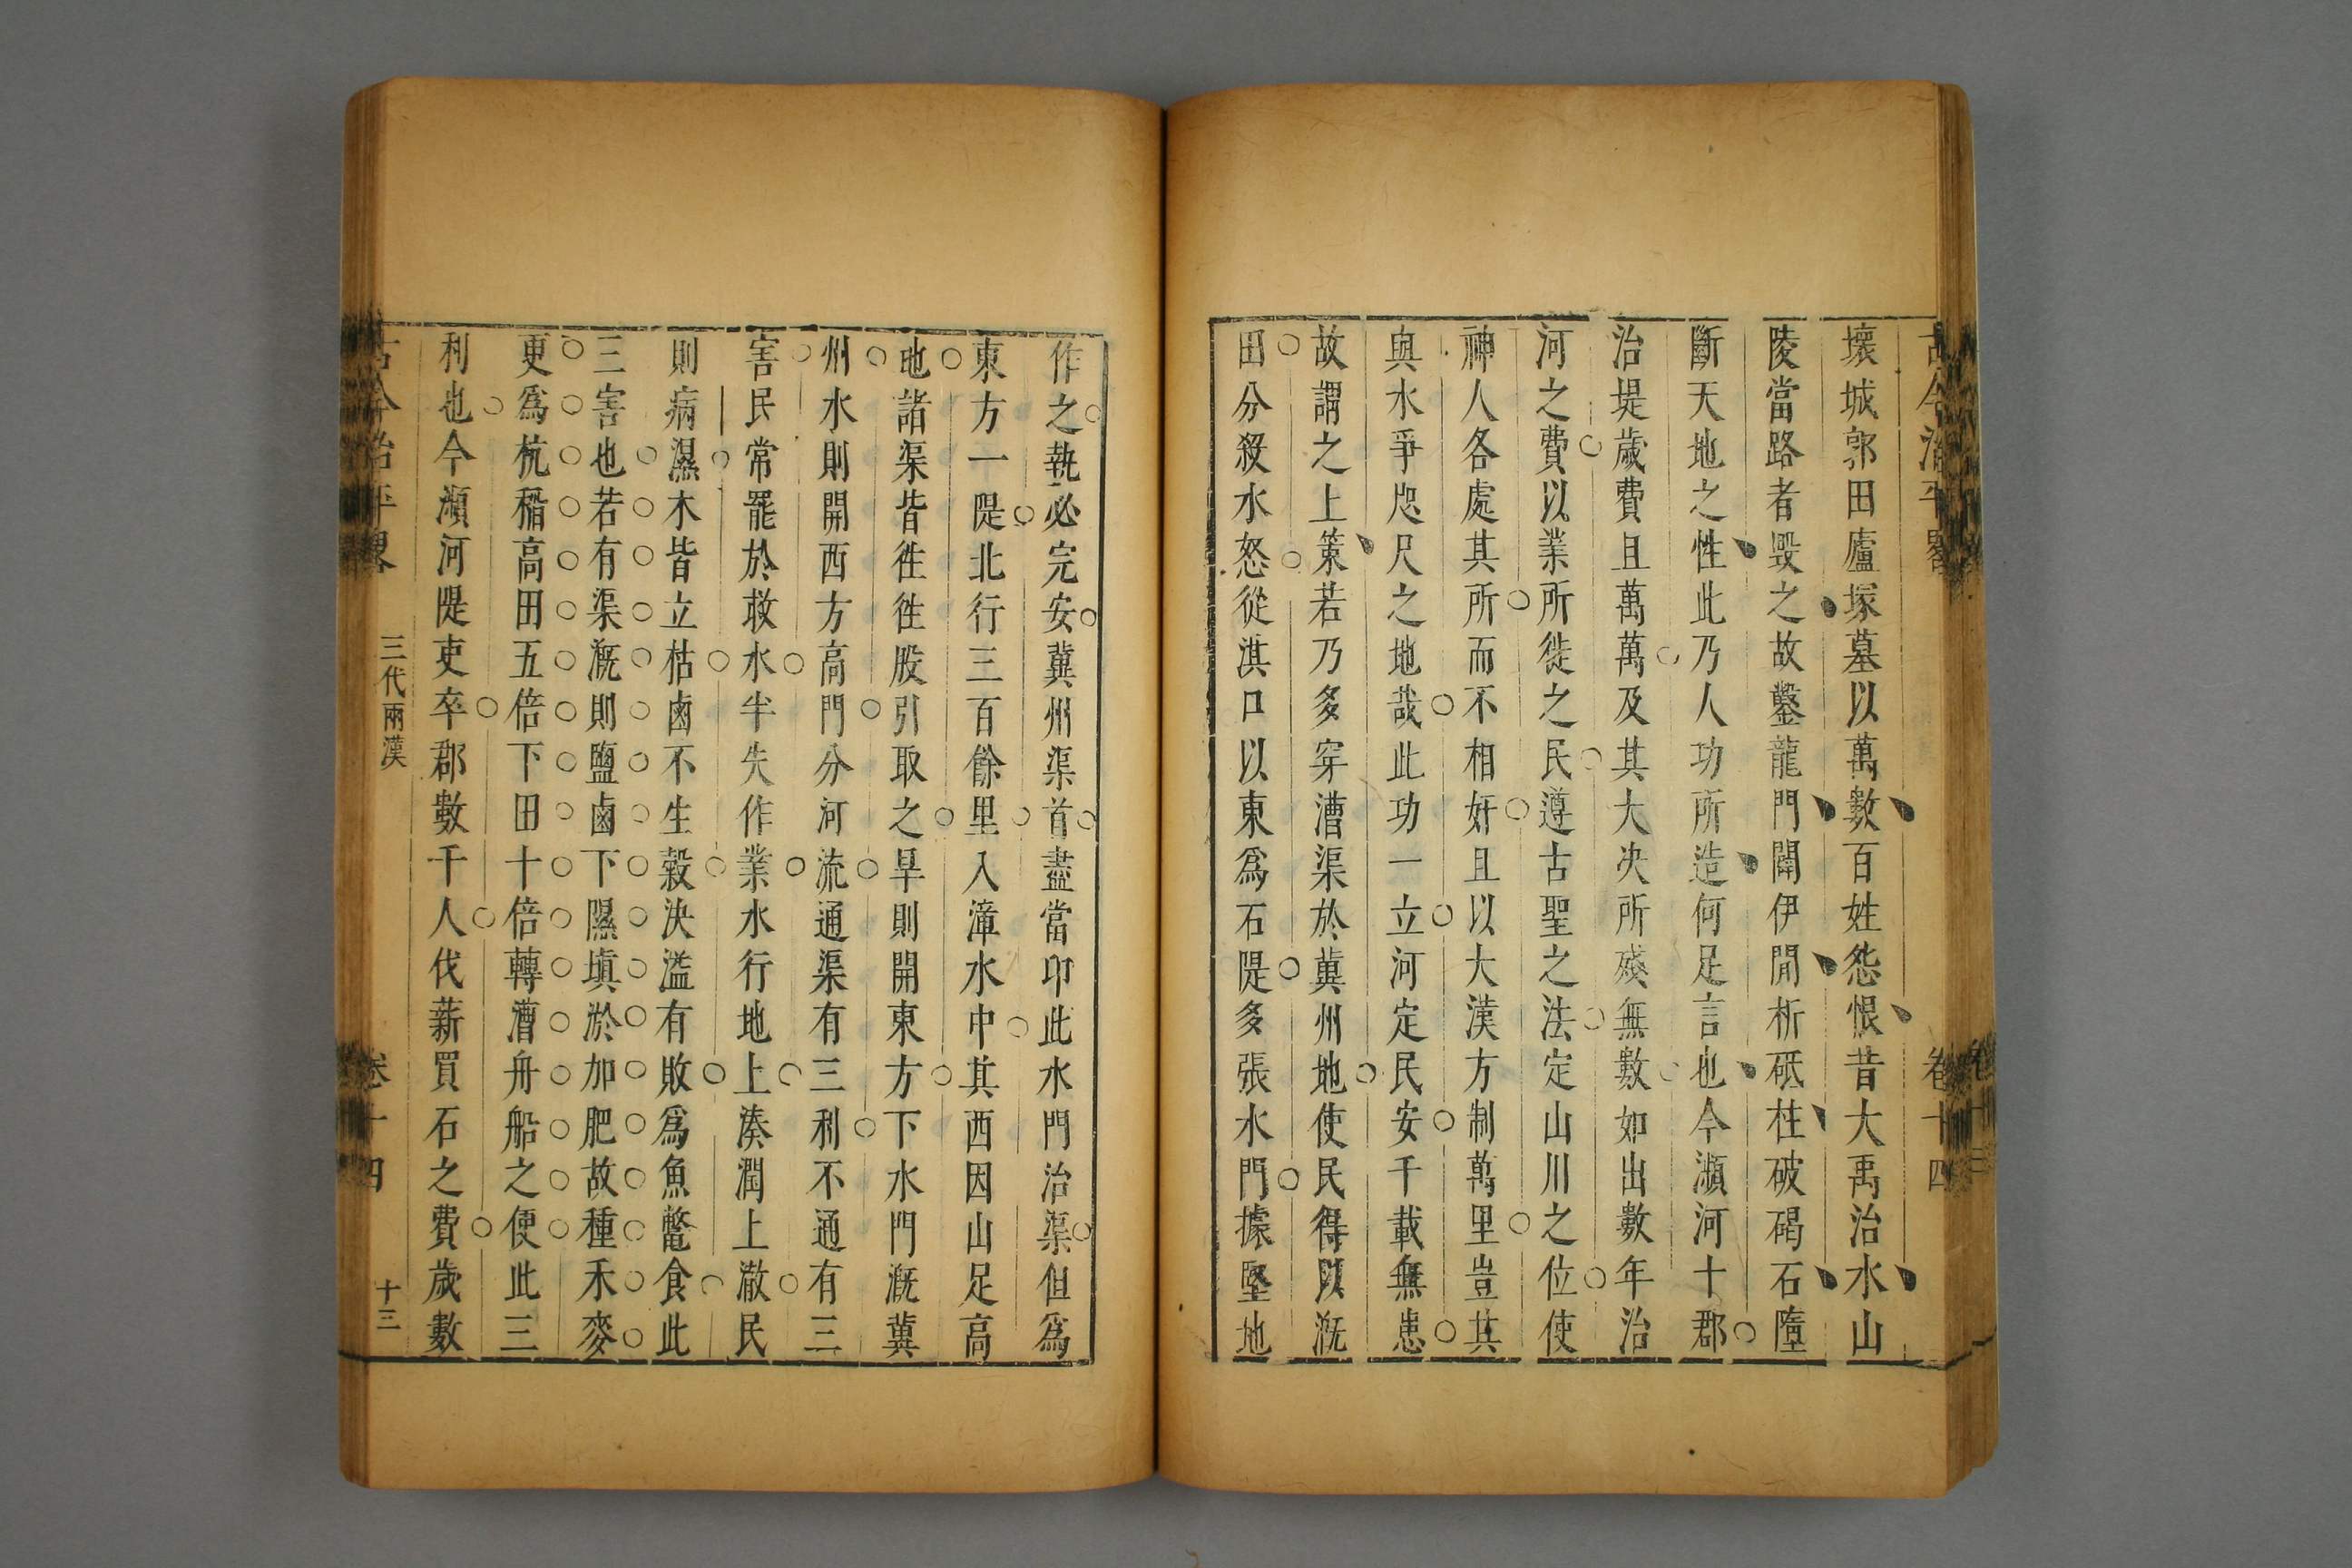 古今治平畧 卷十四
壞城郭田廬塚墓以萬數百姓怨恨昔大禹治水山
陵當路者毀之故鑿龍門闢伊闕析砥柱破碣石隨
斷天地之性此乃人功所造何足言也今瀕河十郡
治堤歲費且萬萬及其大決所殘無數如出數年治
河之費以業所徙之民遵古聖之法定山川之位使
神人各處其所而不相奸且以大漢方制萬里豈其
與水爭咫尺之地哉此功一立河定民安千載無患
故謂之上策若乃多穿漕渠於冀州地使民得以漑
田分殺水怒從淇口以東爲石隄多張水門據堅地
作之執必完安冀州渠首盡當卬此水門治渠但爲
東方一隄北行三百餘里入漳水中其西因山足高
地諸渠皆徃徃股引取之旱則開東方下水門漑冀
州水則開西方高門分河流通渠有三利不通有三
害民常罷於救水半失作業水行地上湊潤上澈民
則病濕木皆立枯鹵不生穀決溢有敗爲魚鼈食此
三害也若有渠漑則鹽鹵下隰塡淤加肥故種禾麥
更爲杭稻高田五倍下田十倍轉漕舟船之便此三
利也今瀕河隄吏卒郡數千人伐薪買石之費歲數
古今治平畧 三代兩漢 卷十四 十三